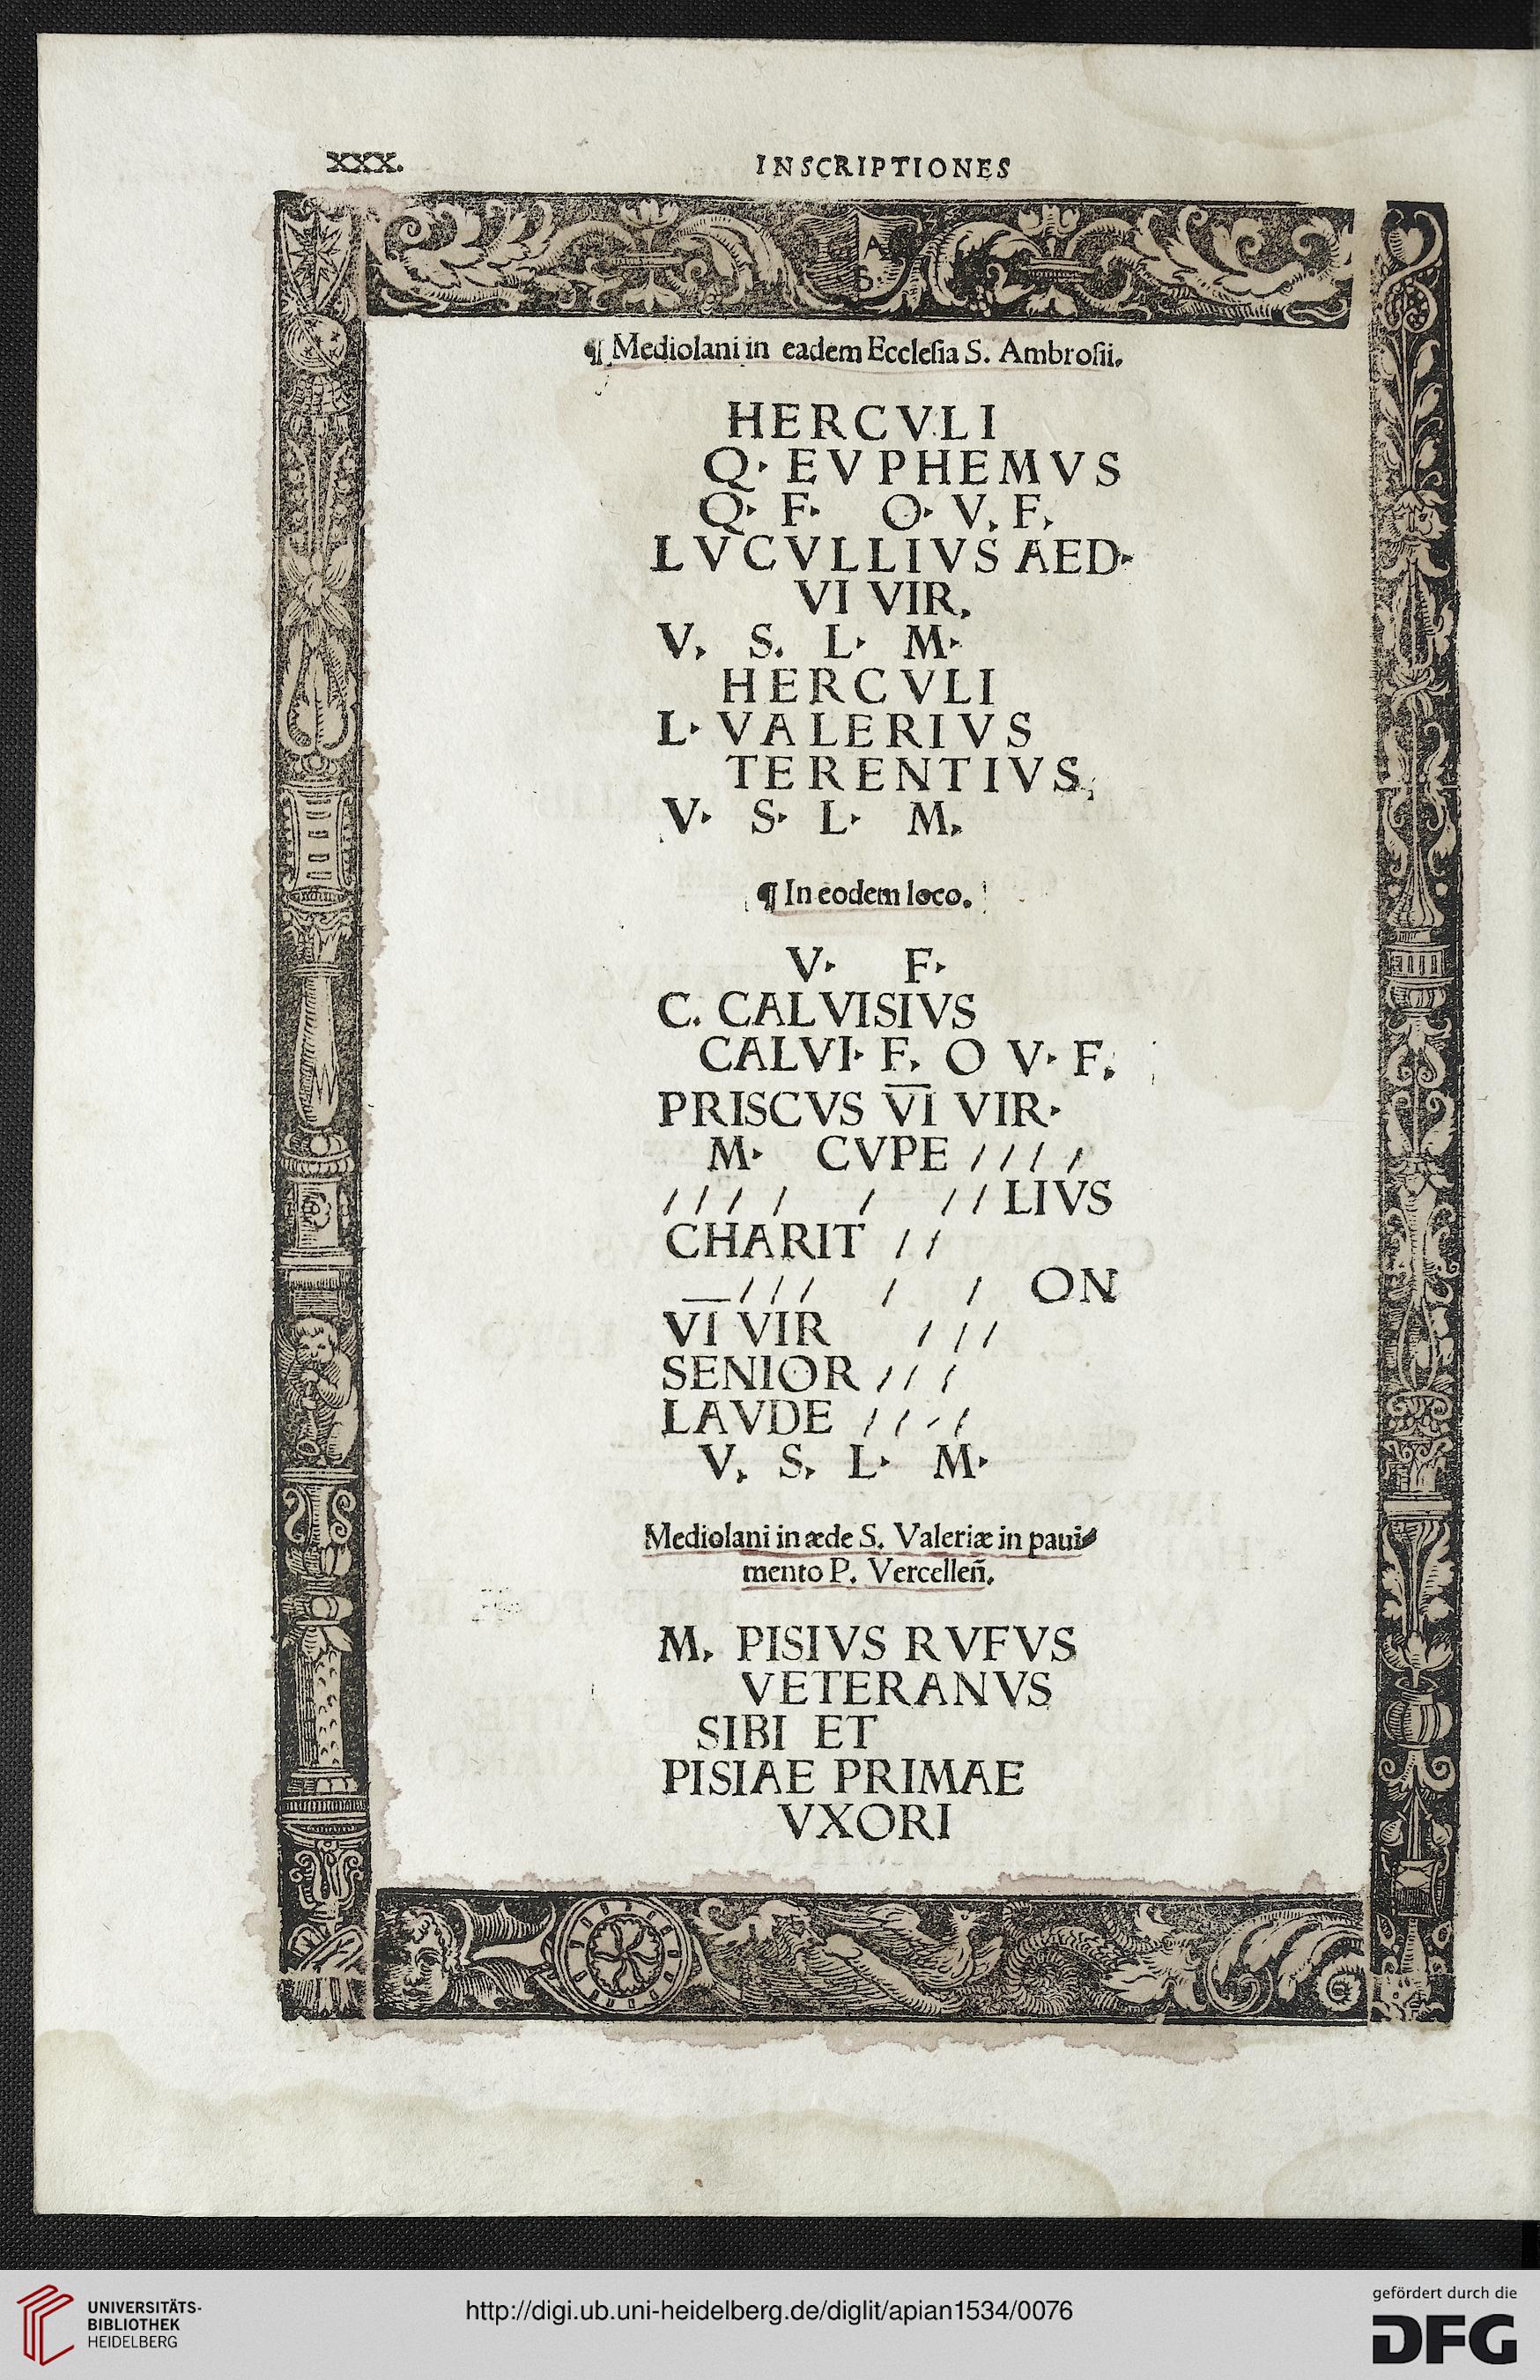 XXX.
INSCRIPTIONES
A
S
¶ Mediolani in eadem Ecclesia S. Ambrosii.
HERCVLI
Q· EVPHEMVS
Q· F· O· V. F.
LVCVLLIVS AED·
VI VIR.
V. S. L· M·
HERCVLI
L· VALERIVS
TERENTIVS.
V· S· L· M.
¶ In eodem loco.
V· F·
C. CALVISIVS
CALVI· F. O V· F.
PRISCVS V̅I̅ VIR·
M· CVPE / / / /
/ / / / / / / LIVS
CHARIT / /
/ / / / / ON
V̅I̅ VIR / / /
SENIOR / / /
LAVDE / / - /
V. S. L· M·
Mediolani in æde S. Valeriæ in paui-
mento P. Vercelleñ.
M. PISIVS RVFVS
VETERANVS
SIBI ET
PISIAE PRIMAE
VXORI
UNIVERSITÄTS-
BIBLIOTHEK
HEIDELBERG
http://digi.ub.uni-heidelberg.de/diglit/apian1534/0076
gefördert durch die
DFG